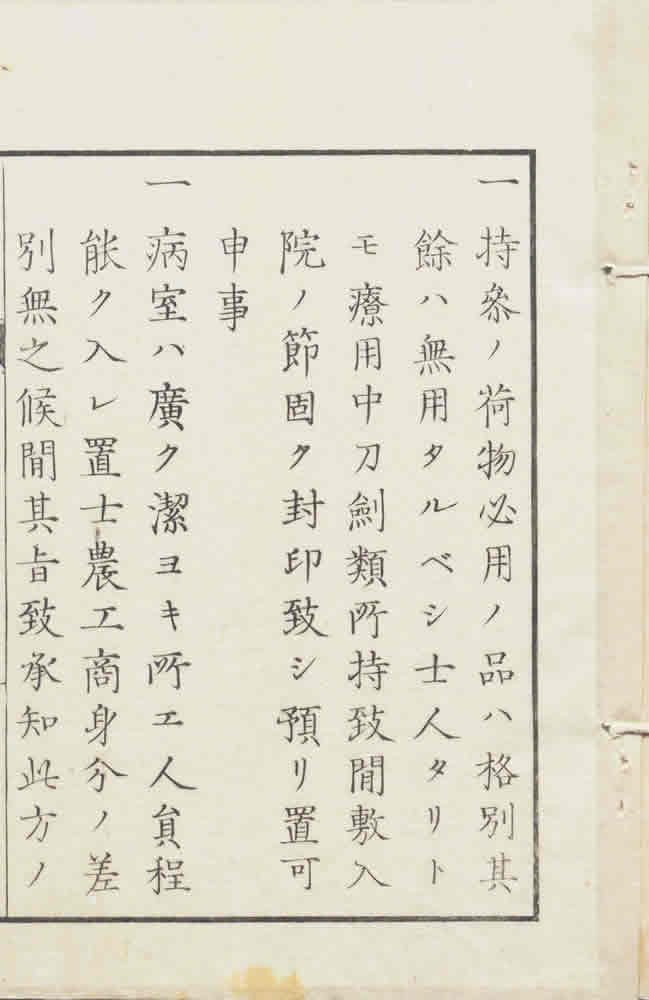 一持參ノ荷物必用ノ品ハ格別其
餘ハ無用タルベシ士人タリト
モ療用中刀劍類所持致間敷入
院ノ節固ク封印致シ預リ置可
申事
一病室ハ廣ク潔ヨキ所エ人員程
能ク入レ置士農工商身分ノ差
別無之候間其旨致承知此方ノ